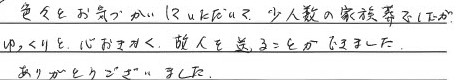 色々とお気づかいしていただいて、少人数の家族葬でしたが
ゆっくりと、心おきなく、故人を送ることができました。
ありがとうございました。